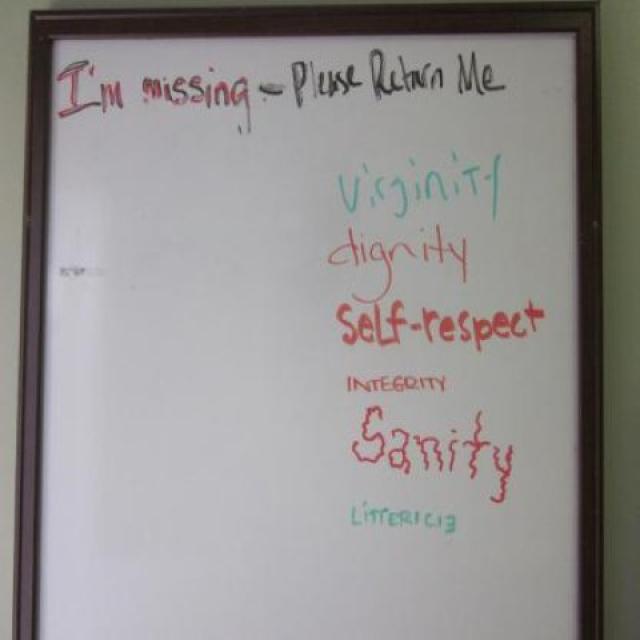 I'm missing - Please Return Me
Virginity
dignity
Self-respect
INTEGRITY
Sanity
LITTERICIE